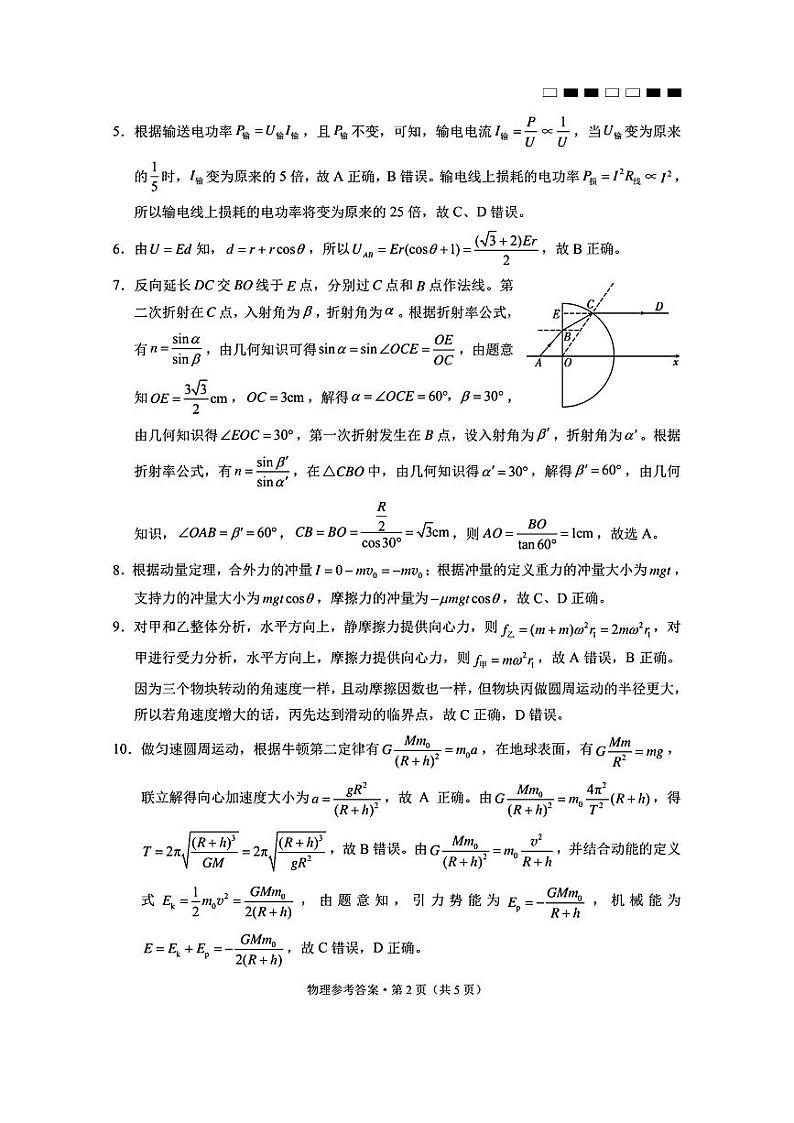 5．根据输送电功率 P输 = U输I输，且 P输 不变，可知，输电电流 I输 = P/U ∝ 1/U，当 U输 变为原来
的 1/5 时，I输 变为原来的 5 倍，故 A 正确，B 错误。输电线上损耗的电功率 P损 = I²R线 ∝ I²，
所以输电线上损耗的电功率将变为原来的 25 倍，故 C、D 错误。
6．由 U = Ed 知，d = r + r cosθ，所以 U_AB = Er(cosθ+1) = (√3+2)Er/2，故 B 正确。
7．反向延长 DC 交 BO 线于 E 点，分别过 C 点和 B 点作法线。第
二次折射在 C 点，入射角为 β，折射角为 α。根据折射率公式，
有 n = sinα/sinβ，由几何知识可得 sinα = sin∠OCE = OE/OC，由题意
知 OE = 3√3/2 cm，OC = 3cm，解得 α = ∠OCE = 60°，β = 30°，
E C D
B
A O x
由几何知识得 ∠EOC = 30°，第一次折射发生在 B 点，设入射角为 β′，折射角为 α′。根据
折射率公式，有 n = sinβ′/sinα′，在 △CBO 中，由几何知识得 α′ = 30°，解得 β′ = 60°，由几何
知识，∠OAB = β′ = 60°，CB = BO = (R/2)/cos30° = √3cm，则 AO = BO/tan60° = 1cm，故选 A。
8．根据动量定理，合外力的冲量 I = 0 − mv₀ = −mv₀；根据冲量的定义重力的冲量大小为 mgt，
支持力的冲量大小为 mgt cosθ，摩擦力的冲量为 −μmgt cosθ，故 C、D 正确。
9．对甲和乙整体分析，水平方向上，静摩擦力提供向心力，则 f乙 = (m+m)ω²r₁ = 2mω²r₁，对
甲进行受力分析，水平方向上，摩擦力提供向心力，则 f甲 = mω²r₁，故 A 错误，B 正确。
因为三个物块转动的角速度一样，且动摩擦因数也一样，但物块丙做圆周运动的半径更大，
所以若角速度增大的话，丙先达到滑动的临界点，故 C 正确，D 错误。
10．做匀速圆周运动，根据牛顿第二定律有 G Mm₀/(R+h)² = m₀a，在地球表面，有 G Mm/R² = mg，
联立解得向心加速度大小为 a = gR²/(R+h)²，故 A 正确。由 G Mm₀/(R+h)² = m₀ 4π²/T² (R+h)，得
T = 2π√((R+h)³/GM) = 2π√((R+h)³/gR²)，故 B 错误。由 G Mm₀/(R+h)² = m₀ v²/(R+h)，并结合动能的定义
式 E_k = 1/2 m₀v² = GMm₀/2(R+h)，由题意知，引力势能为 E_p = −GMm₀/(R+h)，机械能为
E = E_k + E_p = −GMm₀/2(R+h)，故 C 错误，D 正确。
物理参考答案·第 2 页（共 5 页）